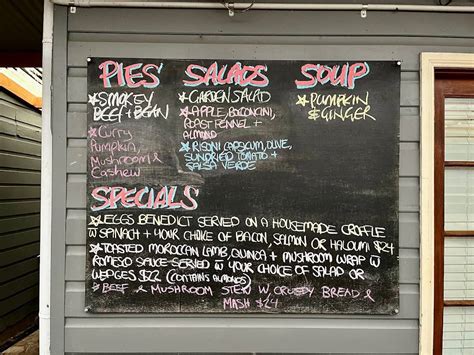 PIES
SMOKEY
BEEF + BEAN
CURRY
PUMPKIN,
MUSHROOM &
CASHEW
SALADS
GARDEN SALAD
APPLE, BOCONCINI,
ROAST FENNEL +
ALMOND
RISONI CAPSICUM, OLIVE,
SUNDRIED TOMATO +
SALSA VERDE
SOUP
PUMPKIN
& GINGER
SPECIALS
EGGS BENEDICT SERVED ON A HOUSEMADE CROFFLE
W SPINACH + YOUR CHOICE OF BACON, SALMON OR HALOUMI $24
TOASTED MOROCCAN LAMB, QUINOA + MUSHROOM WRAP W
ROMESO SAUCE SERVED W YOUR CHOICE OF SALAD OR
WEDGES $22 (CONTAINS ALMONDS)
BEEF & MUSHROOM STEW W CRUSTY BREAD &
MASH $24